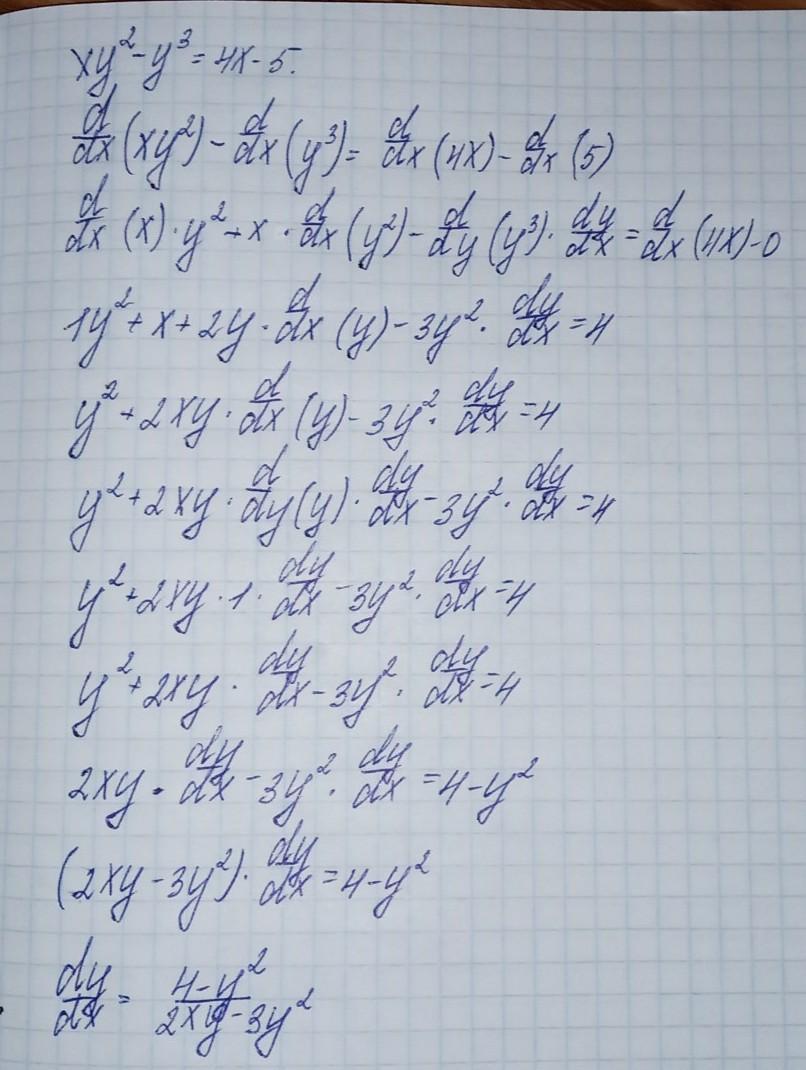 xy² - y³ = 4x - 5.
d/dx (xy²) - d/dx (y³) = d/dx (4x) - d/dx (5)
d/dx (x) · y² + x · d/dx (y²) - d/dy (y³) · dy/dx = d/dx (4x) - 0
1y² + x + 2y · d/dx (y) - 3y² · dy/dx = 4
y² + 2xy · d/dx (y) - 3y² · dy/dx = 4
y² + 2xy · d/dy (y) · dy/dx - 3y² · dy/dx = 4
y² + 2xy · 1 · dy/dx - 3y² · dy/dx = 4
y² + 2xy · dy/dx - 3y² · dy/dx = 4
2xy · dy/dx - 3y² · dy/dx = 4 - y²
(2xy - 3y²) · dy/dx = 4 - y²
dy/dx = 4 - y² / 2xy - 3y²